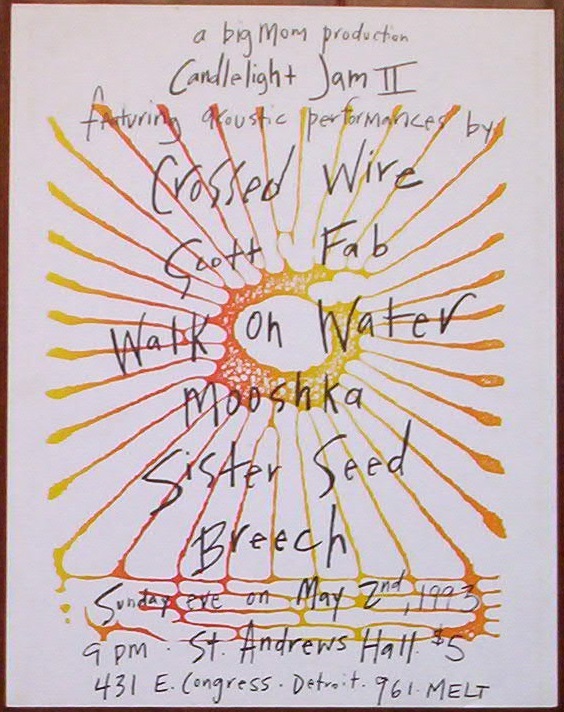 a big Mom production
Candlelight Jam II
featuring acoustic performances by
Crossed Wire
Scott Fab
Walk on Water
Mooshka
Sister Seed
Breech
Sunday eve on May 2nd, 1993
9 pm · St. Andrews Hall · $5
431 E. Congress · Detroit · 961-MELT